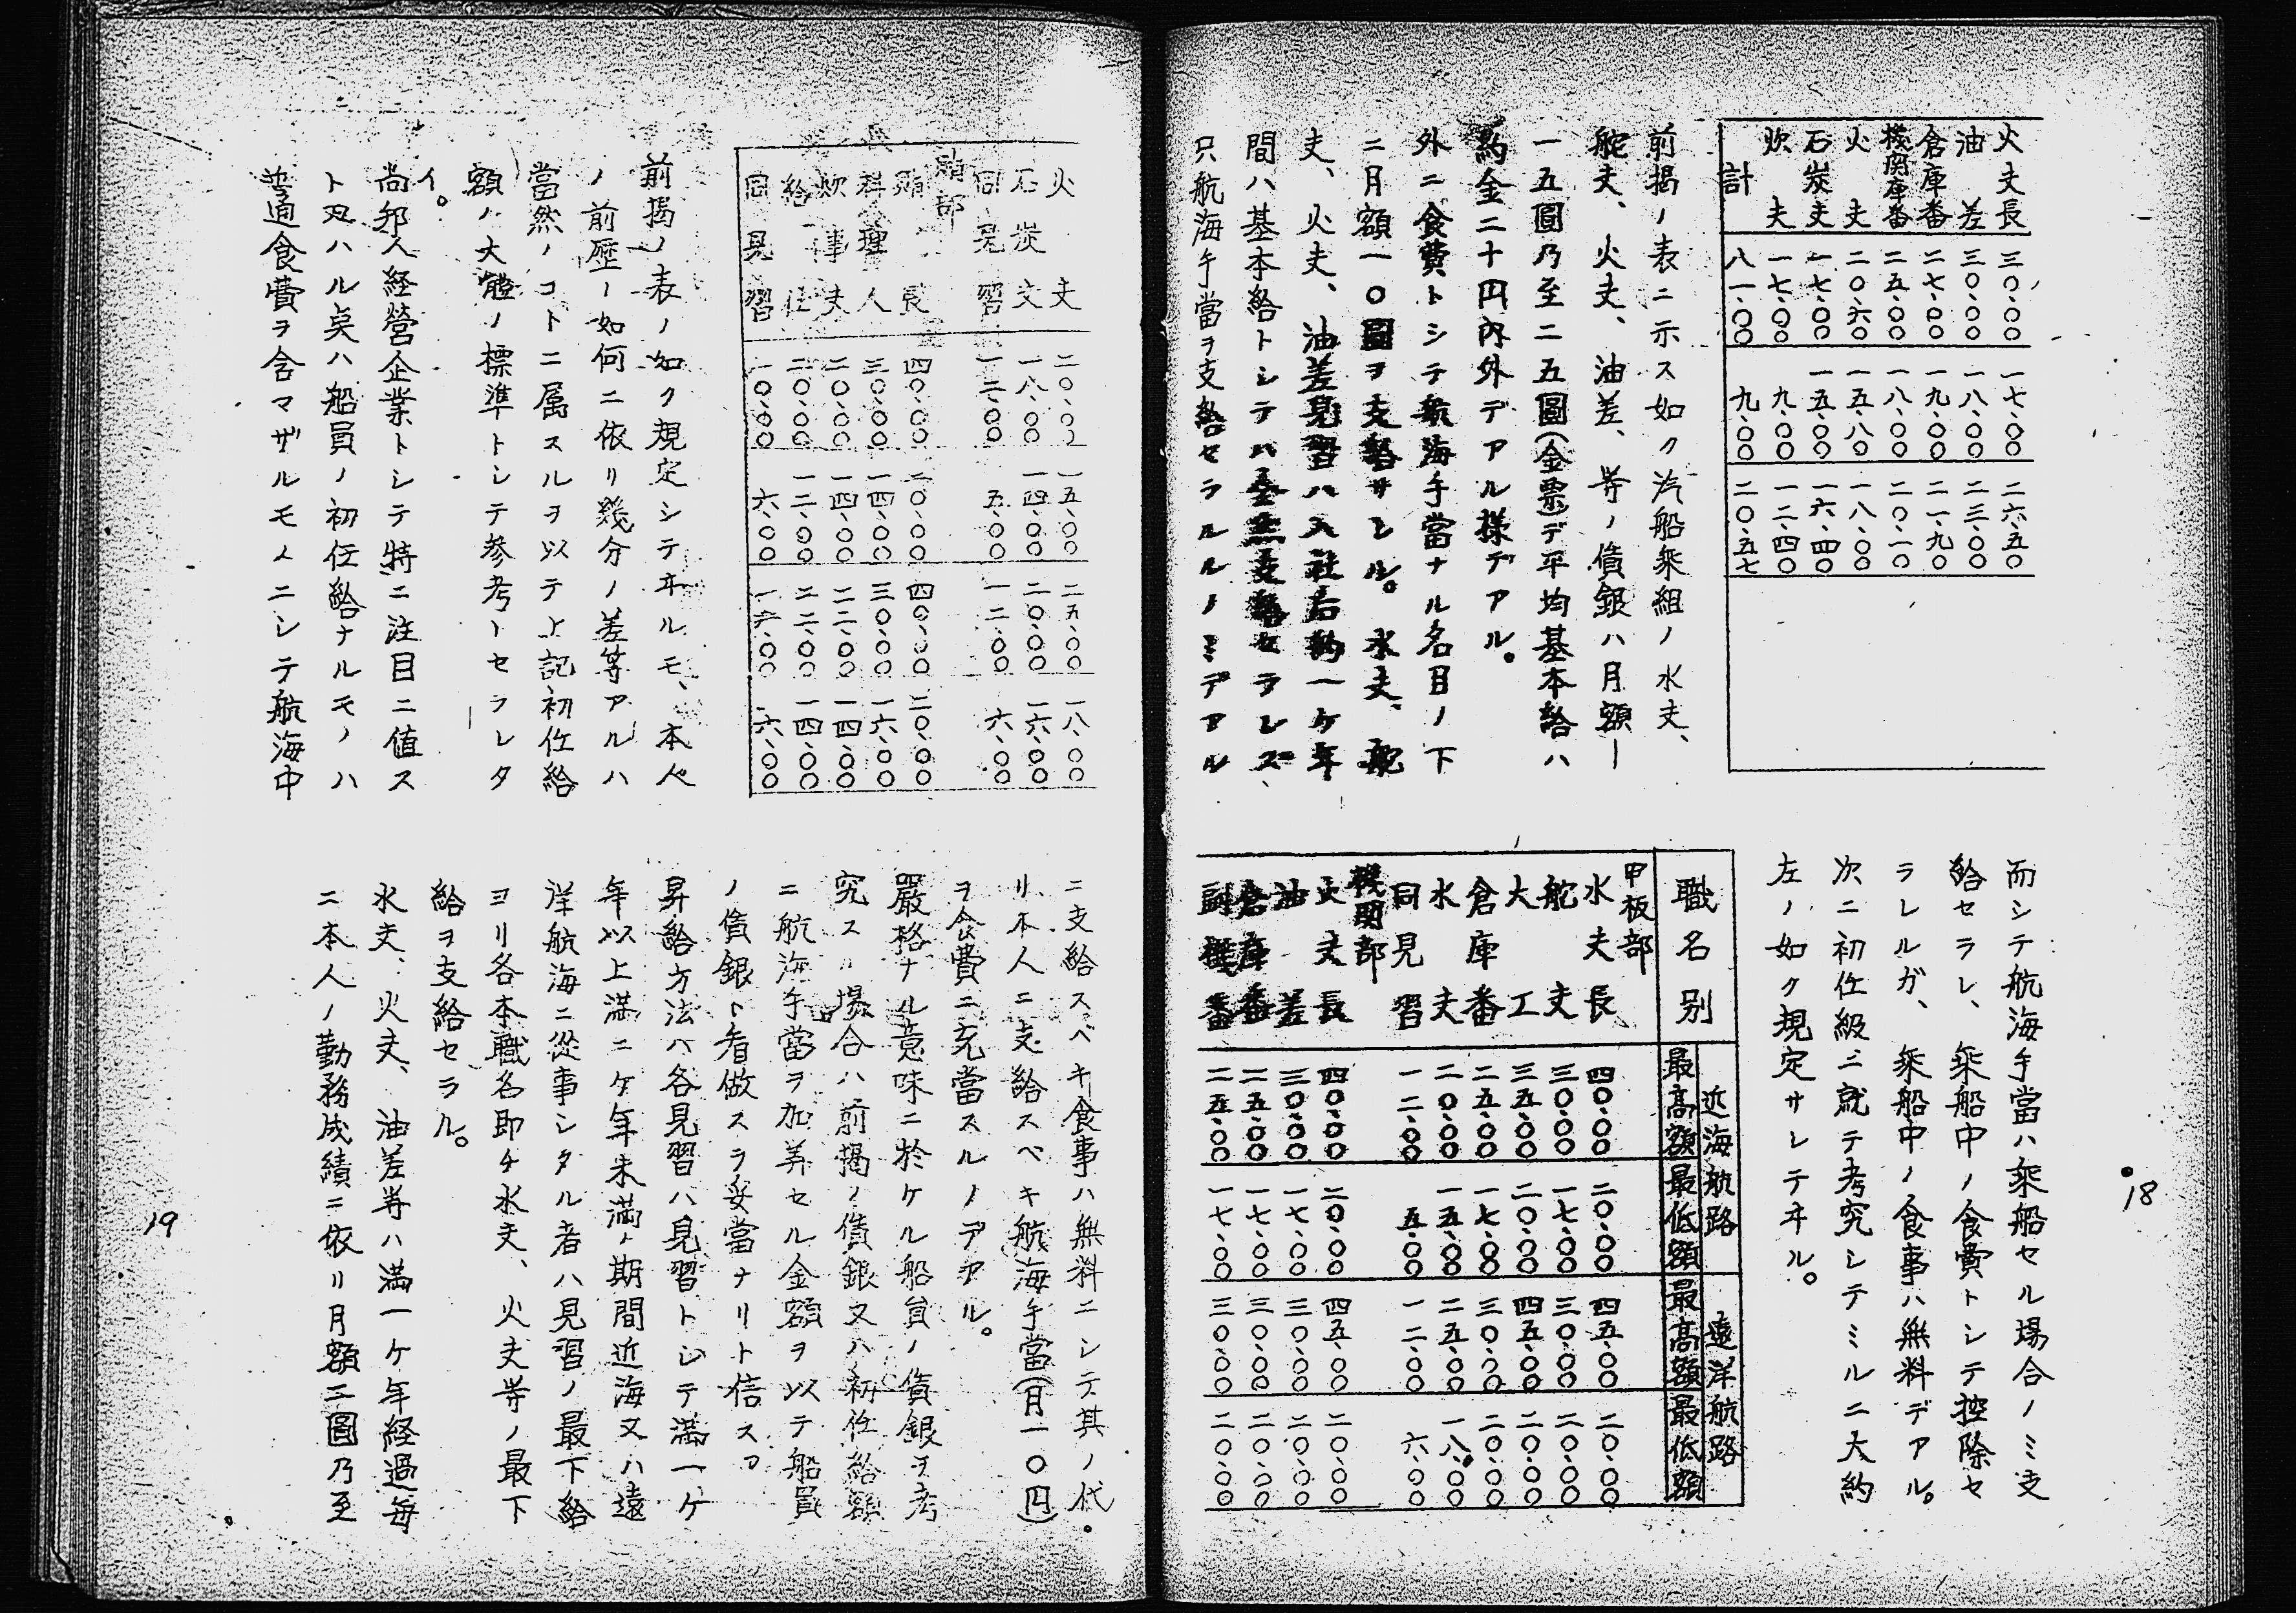 火夫長 三〇、〇〇 一七、〇〇 二六、五〇
油差 三〇、〇〇 一八、〇〇 二三、〇〇
倉庫番 二七、〇〇 一九、〇〇 二一、九〇
機関庫番 二五、〇〇 一八、〇〇 二〇、一〇
火夫 二〇、六〇 一五、八〇 一八、〇〇
石炭夫 一七、〇〇 一五、〇〇 一六、四〇
炊夫 一七、〇〇 九、〇〇 一二、四〇
計 八一、〇〇 九、〇〇 二〇、五七
前掲ノ表ニ示ス如ク汽船乗組ノ水夫、
舵夫、火夫、油差、等ノ賃銀ハ月額ー
一五圓乃至二五圓(金票)デ平均基本給ハ
約金二十円内外デアル様デアル。
外ニ食費トシテ航海手當ナル名目ノ下
ニ月額一〇圓ヲ支給サレル。水夫、舵
夫、火夫、油差見習ハ入社后約一ケ年
間ハ基本給トシテハ全然支給セラレズ、
只航海手當ヲ支給セラルルノミデアル
而シテ航海手當ハ乗船セル場合ノミ支
給セラレ、乗船中ノ食費トシテ控除セ
ラレルガ、乗船中ノ食事ハ無料デアル。
次ニ初任級ニ就テ考究シテミルニ大約
左ノ如ク規定サレテヰル。
職名別 近海航路 遠洋航路
最高額 最低額 最高額 最低額
甲板部
水夫長 四〇、〇〇 二〇、〇〇 四五、〇〇 二〇、〇〇
舵夫 三〇、〇〇 一七、〇〇 三〇、〇〇 二〇、〇〇
大工 三五、〇〇 二〇、〇〇 四五、〇〇 二〇、〇〇
倉庫番 二五、〇〇 一七、〇〇 三〇、〇〇 二〇、〇〇
水夫 二〇、〇〇 一五、〇〇 二五、〇〇 一八、〇〇
同見習 一二、〇〇 五、〇〇 一二、〇〇 六、〇〇
機関部
火夫長 四〇、〇〇 二〇、〇〇 四五、〇〇 二〇、〇〇
油差 三〇、〇〇 一七、〇〇 三〇、〇〇 二〇、〇〇
倉庫番 二五、〇〇 一七、〇〇 三〇、〇〇 二〇、〇〇
副機番 二五、〇〇 一七、〇〇 三〇、〇〇 二〇、〇〇
18
火夫 二〇、〇〇 一五、〇〇 二五、〇〇 一八、〇〇
石炭夫 一八、〇〇 一四、〇〇 二〇、〇〇 一六、〇〇
同見習 一二、〇〇 五、〇〇 一二、〇〇 六、〇〇
賄部
賄長 四〇、〇〇 二〇、〇〇 四〇、〇〇 二〇、〇〇
料理人 三〇、〇〇 一四、〇〇 三〇、〇〇 一六、〇〇
炊事夫 二〇、〇〇 一四、〇〇 二二、〇〇 一四、〇〇
給仕 二〇、〇〇 一二、〇〇 二二、〇〇 一四、〇〇
同見習 一〇、〇〇 六、〇〇 一六、〇〇 六、〇〇
前掲ノ表ノ如ク規定シテヰルモ、本人
ノ前歴ノ如何ニ依リ幾分ノ差等アルハ
當然ノコトニ属スルヲ以テ上記初任給
額ノ大體ノ標準トシテ参考トセラレタ
イ。
尚邦人経営企業トシテ特ニ注目ニ値ス
ト思ハル臭ハ船員ノ初任給ナルモノハ
普通食費ヲ含マザルモノニシテ航海中
ニ支給スベキ食事ハ無料ニシテ其ノ代
リ本人ニ支給スベキ航海手當(月一〇円)
ヲ食費ニ充當スルノデアル。
嚴格ナル意味ニ於ケル船員ノ賃銀ヲ考
究スル場合ハ前掲ノ賃銀又ハ初任給額
ニ航海手當ヲ加算セル金額ヲ以テ船員
ノ賃銀ト看做スラ妥當ナリト信ス。
昇給方法ハ各見習ハ見習トシテ満一ケ
年以上満二ケ年未満ノ期間近海又ハ遠
洋航海ニ從事シタル者ハ見習ノ最下給
ヨリ各本職名即チ水夫、火夫等ノ最下
給ヲ支給セラル。
水夫、火夫、油差等ハ満一ケ年経過毎
ニ本人ノ勤務成績ニ依リ月額二圓乃至
19